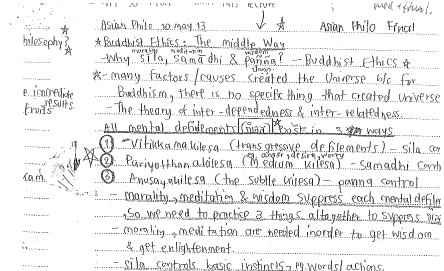 Asian Philo 10 may. 13
Asian Philo Final
Philosophy?
★ Buddhist Ethics: The middle Way
morality meditation wisdom
- Why sila, samadhi & panna? - Buddhist Ethics ★
★ - many factors/causes created the Universe b/c for
Buddhism, there is no specific thing that created universe
e. immediate
results.
fruits
- The theory of inter-dependedness & inter-relatedness.
All mental defilements exist in 3 ways
① Vitikkamakilesa (transgressive defilements) - sila con
eg. anger, desire, worry
② Pariyutthanakilesa (Medium kilesa) - Samadhi cont
③ Anusayakilesa (the subtle kilesa) - panna control
exam.
- morality, meditation & wisdom suppress each mental defilem
so we need to practise 3 things altogether to suppress
- morality, meditation are needed inorder to get wisdom
& get enlightenment.
- sila controls basic instincts, eg. words/actions.